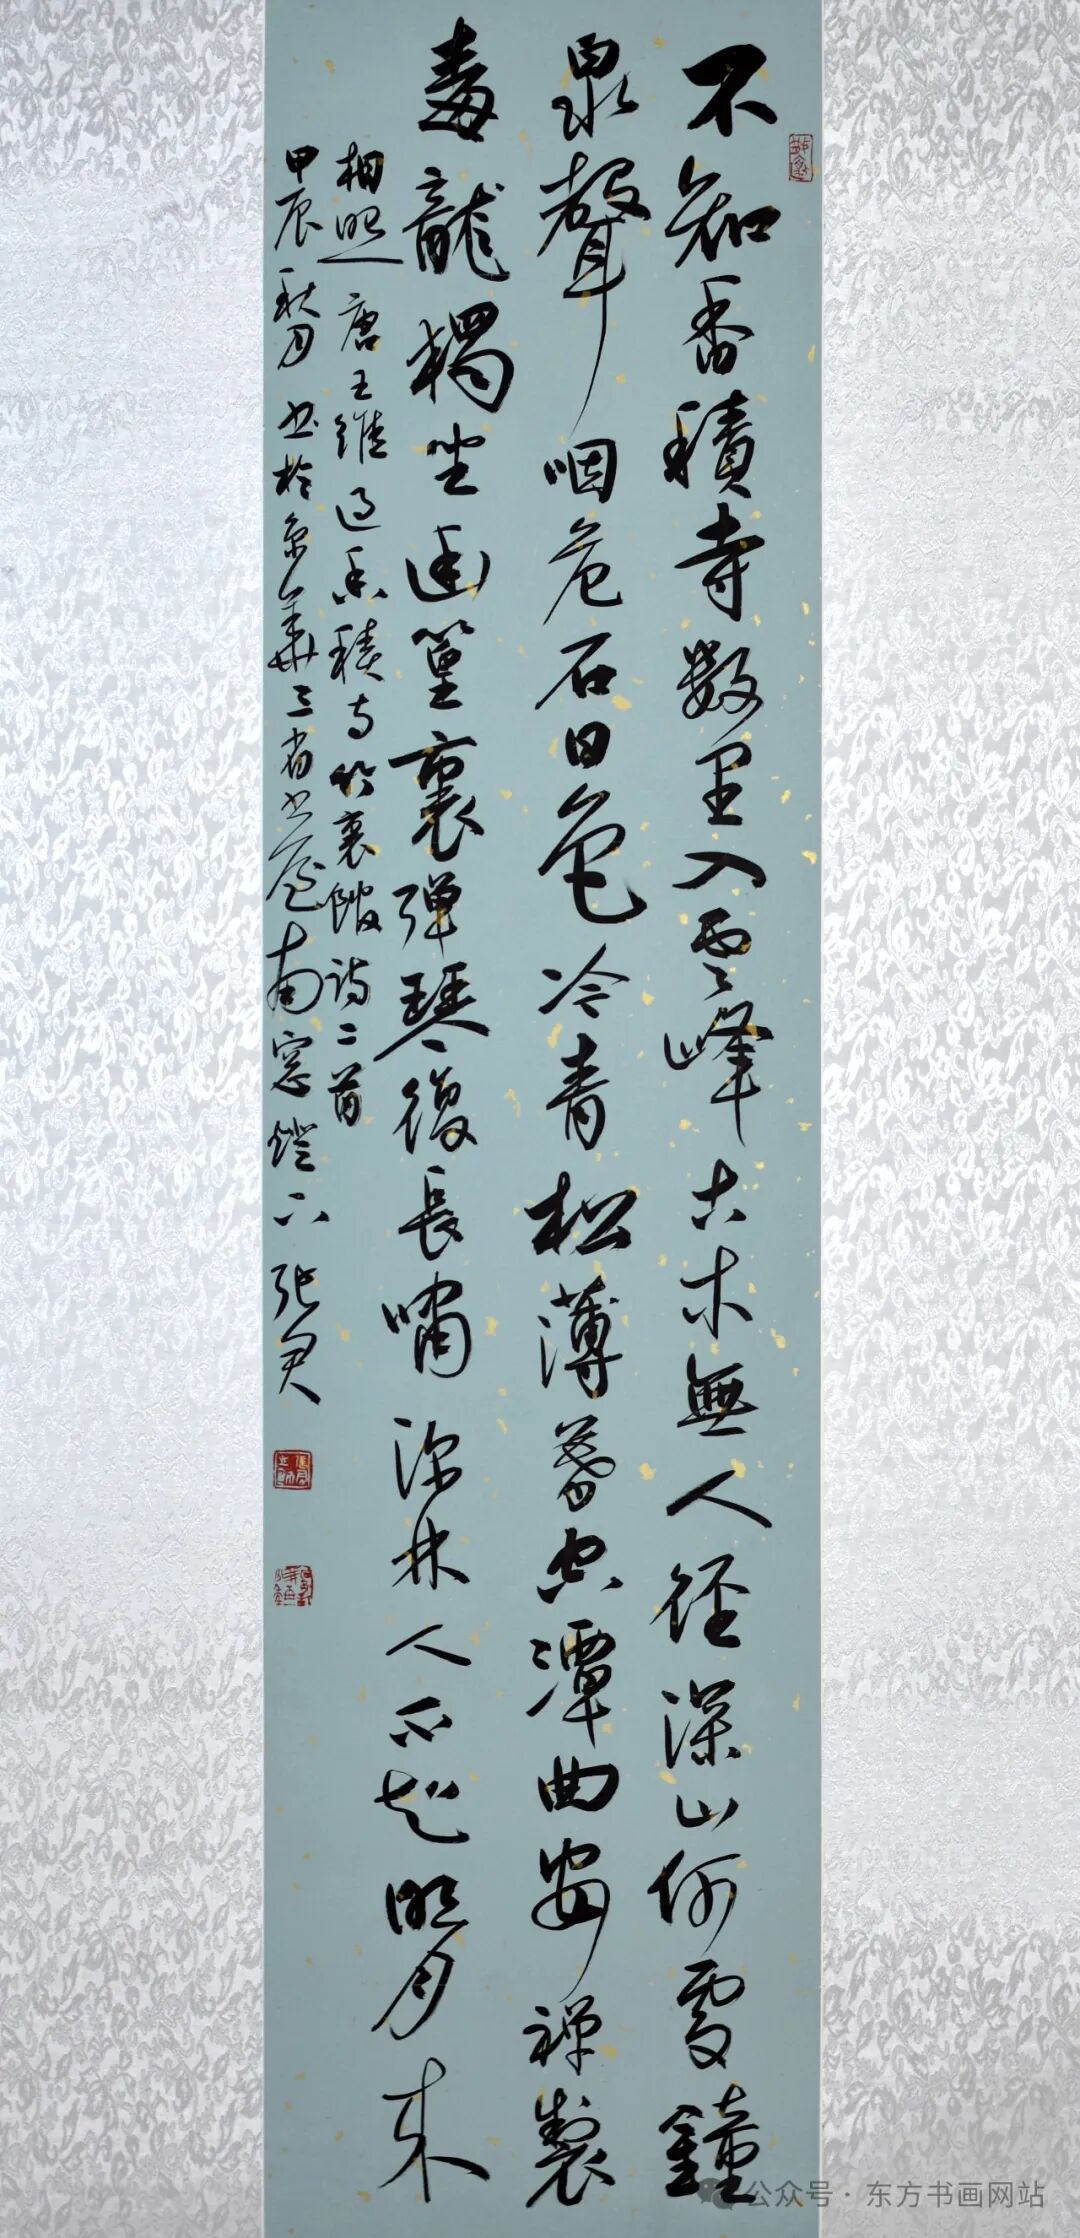 不知香積寺數里入雲峰古木無人徑深山何處鐘
泉聲咽危石日色冷青松薄暮空潭曲安禪製
毒龍獨坐幽篁裏弹琴復長嘯深林人不明月來
相照 唐王維過香積寺竹裏館詩二首
甲辰秋月書於京華三省書屋南窓燈下 張君
公众号 · 东方书画网站